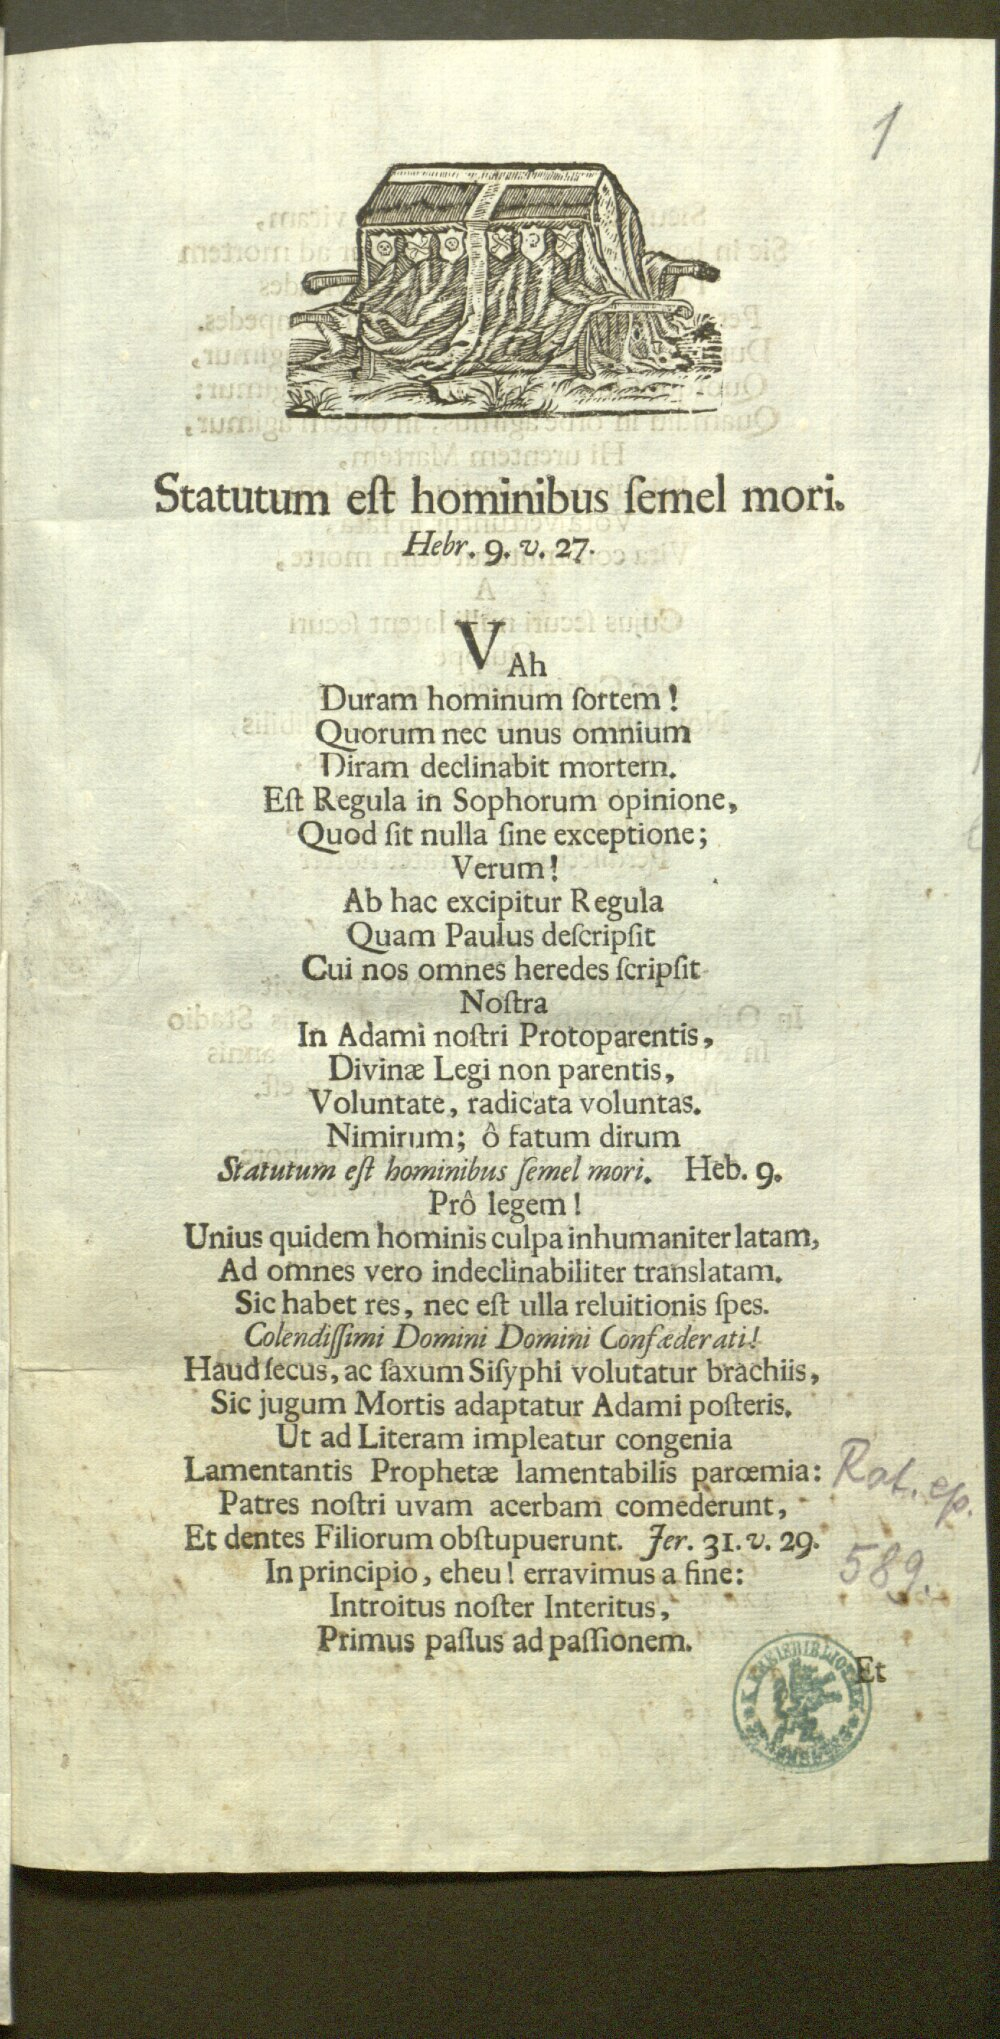 1
Statutum eſt hominibus ſemel mori.
Hebr. 9. v. 27.
VAh
Duram hominum ſortem!
Quorum nec unus omnium
Diram declinabit mortem.
Eſt Regula in Sophorum opinione,
Quod ſit nulla ſine exceptione;
Verum!
Ab hac excipitur Regula
Quam Paulus deſcripſit
Cui nos omnes heredes ſcripſit
Noſtra
In Adami noſtri Protoparentis,
Divinæ Legi non parentis,
Voluntate, radicata voluntas.
Nimirum; ô fatum dirum
Statutum eſt hominibus ſemel mori. Heb. 9.
Prô legem!
Unius quidem hominis culpa inhumaniter latam,
Ad omnes vero indeclinabiliter translatam.
Sic habet res, nec eſt ulla reluitionis ſpes.
Colendiſſimi Domini Domini Confæderati!
Haud ſecus, ac ſaxum Siſyphi volutatur brachiis,
Sic jugum Mortis adaptatur Adami poſteris.
Ut ad Literam impleatur congenia
Lamentantis Prophetæ lamentabilis parœmia:
Patres noſtri uvam acerbam comederunt,
Et dentes Filiorum obſtupuerunt. Jer. 31. v. 29.
In principio, eheu! erravimus a fine:
Introitus noſter Interitus,
Primus paſſus ad paſſionem.
Et
Rat. ep.
589.